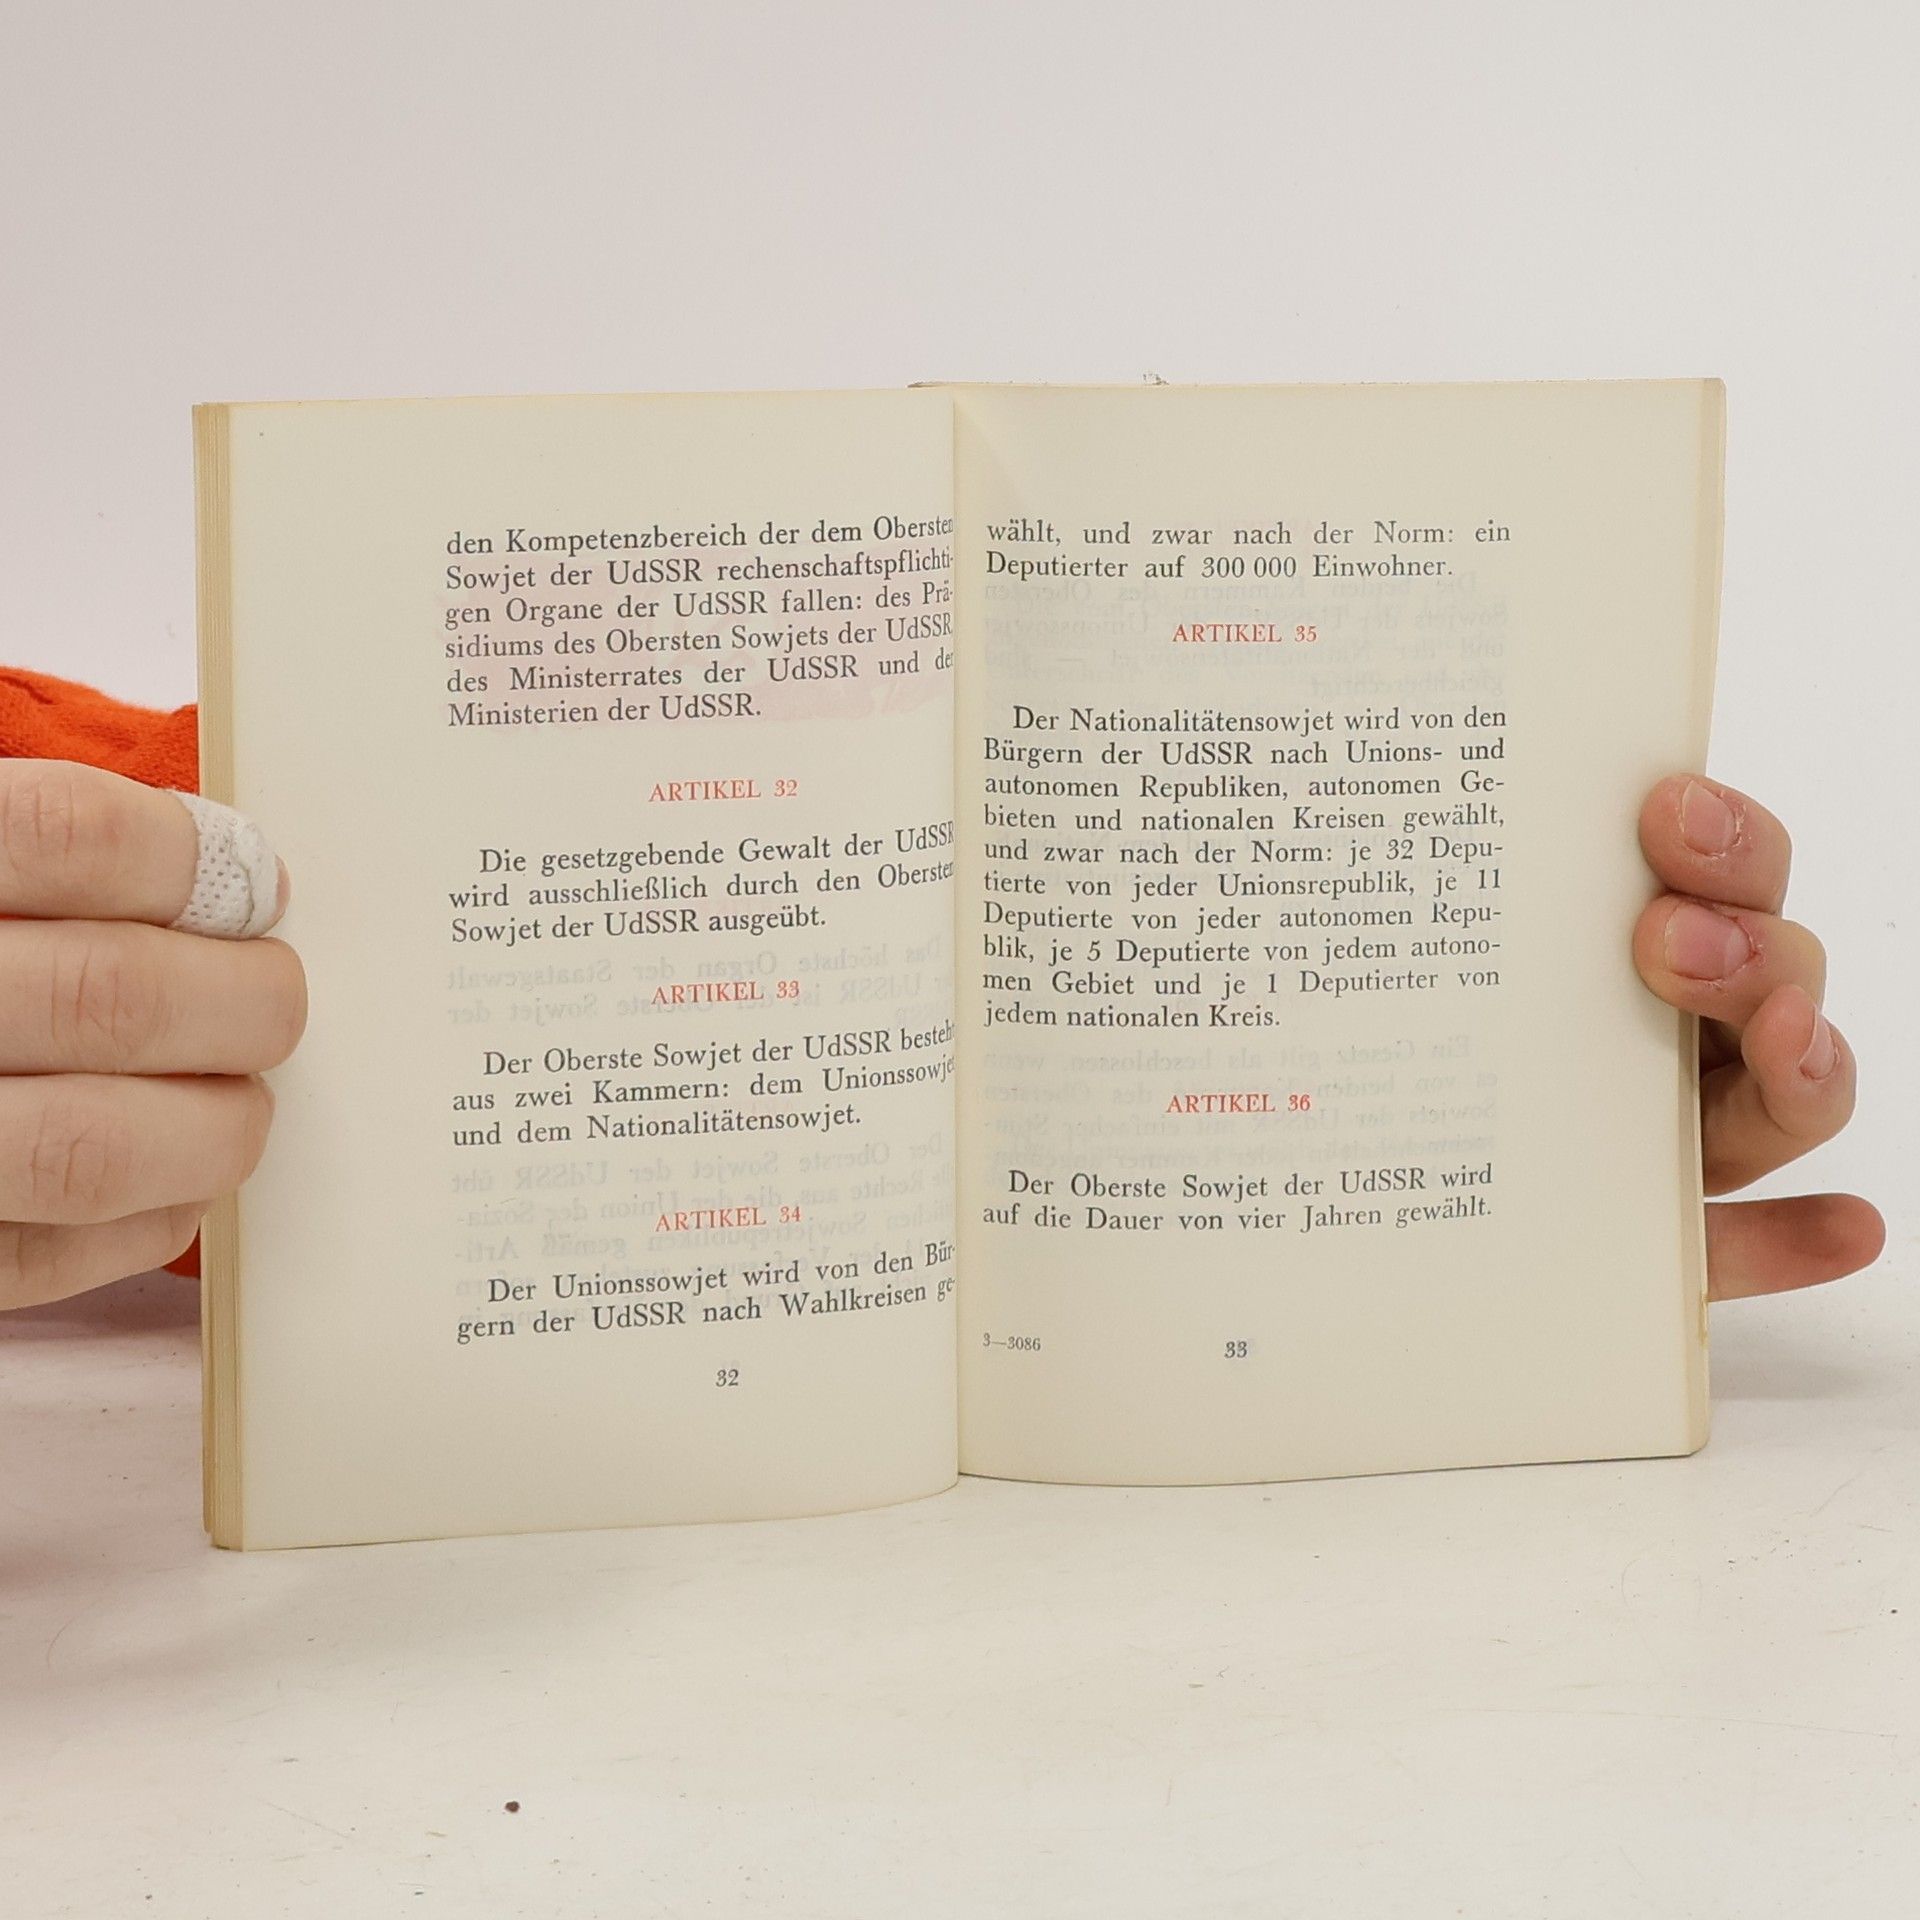 den Kompetenzbereich der dem Obersten
Sowjet der UdSSR rechenschaftspflichti-
gen Organe der UdSSR fallen: des Prä-
sidiums des Obersten Sowjets der UdSSR,
des Ministerrates der UdSSR und der
Ministerien der UdSSR.
ARTIKEL 32
Die gesetzgebende Gewalt der UdSSR
wird ausschließlich durch den Obersten
Sowjet der UdSSR ausgeübt.
ARTIKEL 33
Der Oberste Sowjet der UdSSR besteht
aus zwei Kammern: dem Unionssowjet
und dem Nationalitätensowjet.
ARTIKEL 34
Der Unionssowjet wird von den Bür-
gern der UdSSR nach Wahlkreisen ge-
32
wählt, und zwar nach der Norm: ein
Deputierter auf 300 000 Einwohner.
ARTIKEL 35
Der Nationalitätensowjet wird von den
Bürgern der UdSSR nach Unions- und
autonomen Republiken, autonomen Ge-
bieten und nationalen Kreisen gewählt,
und zwar nach der Norm: je 32 Depu-
tierte von jeder Unionsrepublik, je 11
Deputierte von jeder autonomen Repu-
blik, je 5 Deputierte von jedem autono-
men Gebiet und je 1 Deputierter von
jedem nationalen Kreis.
ARTIKEL 36
Der Oberste Sowjet der UdSSR wird
auf die Dauer von vier Jahren gewählt.
3—3086
33